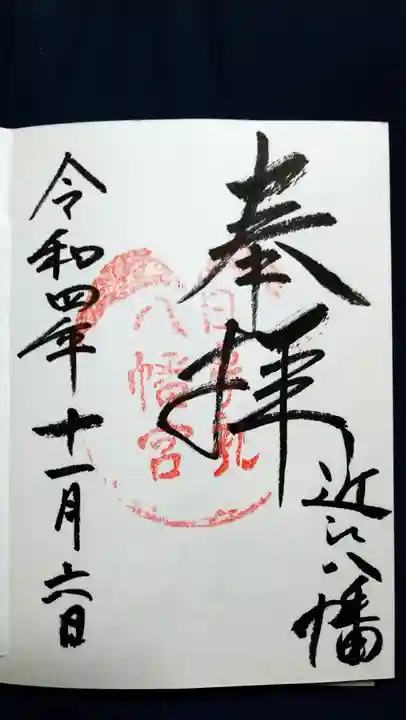 奉拝
近江八幡
日牟禮
八幡宮
令和四年十一月六日